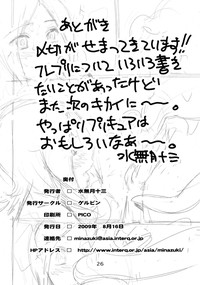 あとがき
〆切がせまってきています!!
フレプリについていろいろ書き
たいことがあったけど
また次のキカイに〜。
やっぱりプリキュアは
おもしろいなあ〜
水無月十三
奥付
発行者 □ 水無月十三
発行サークル □ ケルピン
印刷所 □ PICO
発行日 □ 2009年 8月16日
連絡先 □ minazuki@asia.interq.or.jp
HPアドレス □ http://www.interq.or.jp/asia/minazuki/
26